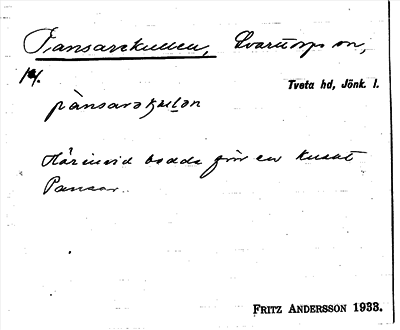 Pansarekullen, Svarttorps sn,
Tveta hd, Jönk. l.
Härinvid bodde förr en knekt
Pansar.
FRITZ ANDERSSON 1933.